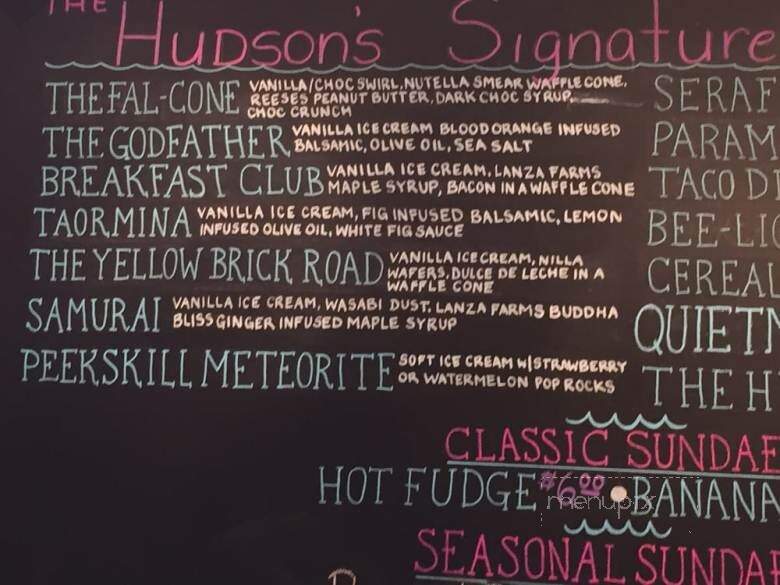 THE
HUDSON'S Signature
THE FAL-CONE VANILLA/CHOC SWIRL, NUTELLA SMEAR WAFFLE CONE,
REESES PEANUT BUTTER, DARK CHOC SYRUP,
CHOC CRUNCH
THE GODFATHER VANILLA ICE CREAM BLOOD ORANGE INFUSED
BALSAMIC, OLIVE OIL, SEA SALT
BREAKFAST CLUB VANILLA ICE CREAM, LANZA FARMS
MAPLE SYRUP, BACON IN A WAFFLE CONE
TAORMINA VANILLA ICE CREAM, FIG INFUSED BALSAMIC, LEMON
INFUSED OLIVE OIL, WHITE FIG SAUCE
THE YELLOW BRICK ROAD VANILLA ICE CREAM, NILLA
WAFERS, DULCE DE LECHE IN A
WAFFLE CONE
SAMURAI VANILLA ICE CREAM, WASABI DUST, LANZA FARMS BUDDHA
BLISS GINGER INFUSED MAPLE SYRUP
PEEKSKILL METEORITE SOFT ICE CREAM W/STRAWBERRY
OR WATERMELON POP ROCKS
SERAF
PARAM
TACO D
BEE-LI
CEREAL
QUIET
THE H
CLASSIC SUNDAE
HOT FUDGE $6.00 • BANANA
menupix
SEASONAL SUNDA